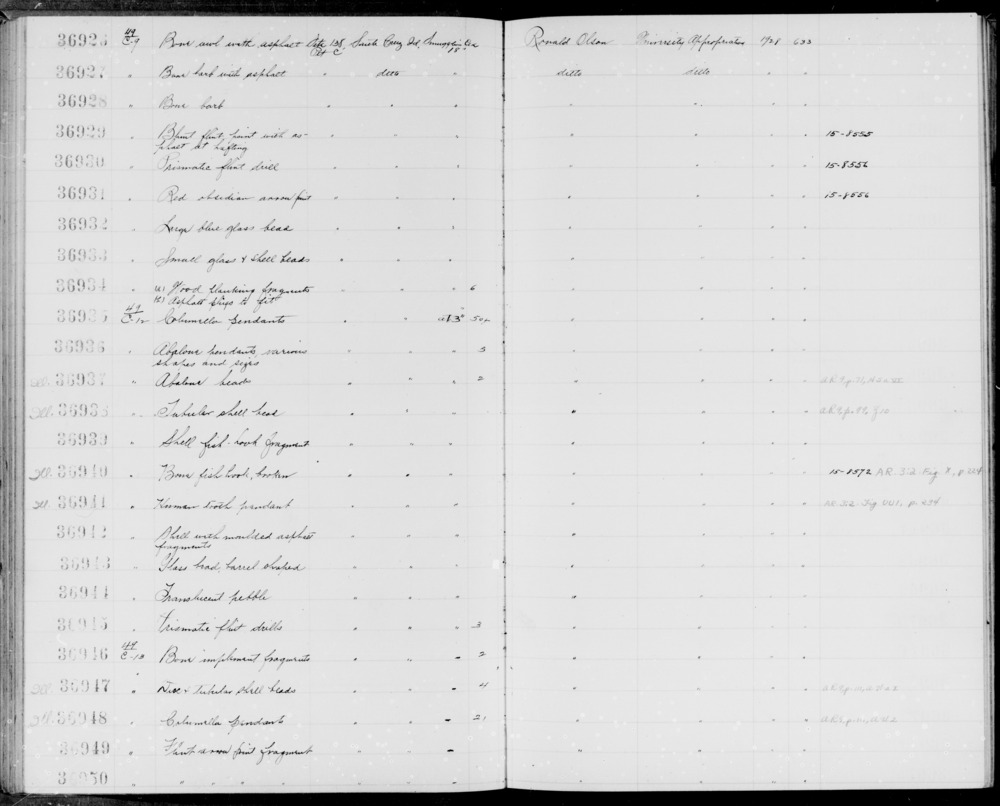 36926 49/C-9 Bone awl with asphalt Site 138 Pit C Santa Cruz Id, Ronald Olson University Appropriation 1928 633
36927 " Bone barb with asphalt " ditto " ditto ditto " "
36928 " Bone barb " " " " " " "
36929 " Blunt flint point with as- " " " " " " " 15-8555
phalt at hafting
36930 " Prismatic flint drill " " " " " " " 15-8556
36931 " Red obsidian arrow point " " " " " " " 15-8556
36932 " Large blue glass bead " " " " " " "
36933 " Small glass & shell beads " " " " " " "
36934 " (a) Wood planking fragments " " " 6 " " " "
(b) Asphalt plugs to fit
36935 49/C-12 Columella pendants " " at 3' 50+ " " " "
36936 " Abalone pendants, various " " " 5 " " " "
shapes and sizes
Ill. 36937 " Abalone beads " " " 2 " " " "
Ill. 36938 " Tubular shell bead " " " " " " "
36939 " Shell fish-hook fragment " " " " " " "
Ill. 36940 " Bone fish hook, broken " " " " " " " 15-8572 AR 3:2 Fig 8, p. 224
Ill. 36941 " Human tooth pendant " " " " " " " AR 3:2 Fig p. 234
36942 " Shell with moulded asphalt " " " " " " "
fragments
36943 " Glass bead, barrel shaped " " " " " " "
36944 " Translucent pebble " " " " " " "
36945 " Prismatic flint drills " " " 3 " " " "
36946 49/C-13 Bone implement fragments " " " 2 " " " "
Ill. 36947 " Disc & tubular shell beads " " " 4 " " " "
Ill. 36948 " Columella pendants " " " 21 " " " "
36949 " Flint arrow point fragment " " " " " " "
36950 " " " " " " " " " " "